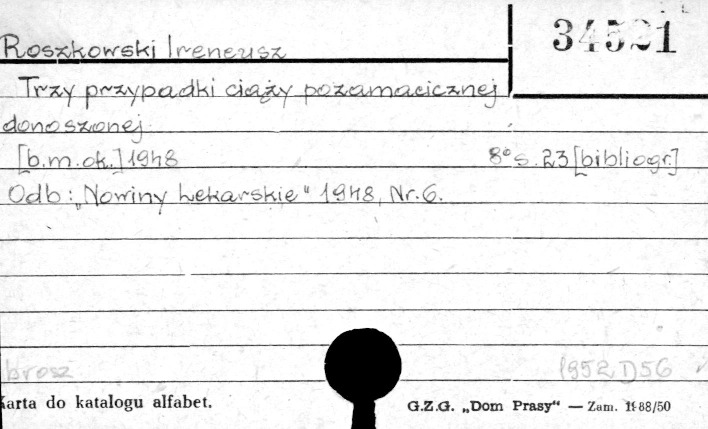 34521
Roszkowski Ireneusz
Trzy przypadki ciąży pozamacicznej
donoszonej.
[b.m.ok.] 1948 8° s. 23 [bibliogr.]
Odb: „Nowiny Lekarskie" 1948, Nr. 6.
brosz 1952 D 56
Karta do katalogu alfabet. G.Z.G. „Dom Prasy" — Zam. 1988/50